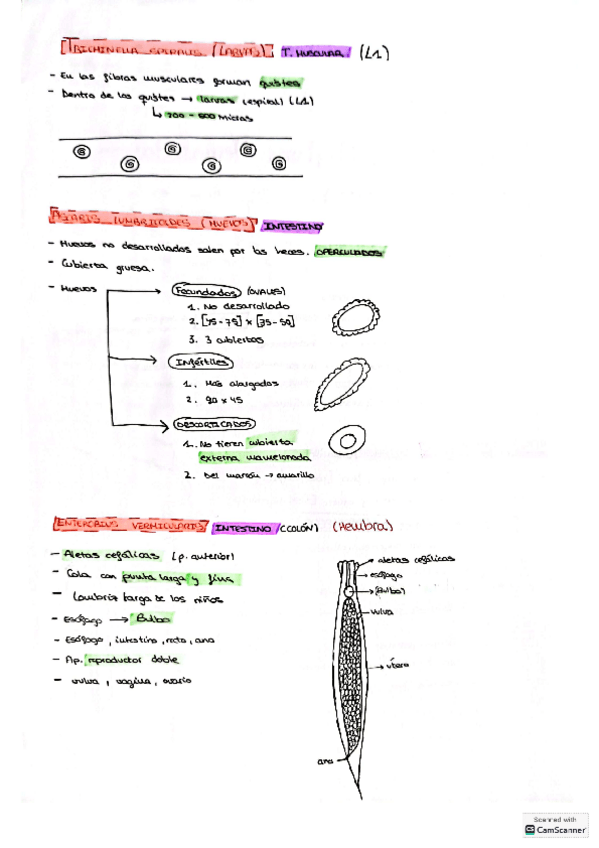 TRICHINELLA SPIRALIS (LARVAS) T. MUSCULAR (L1)
- En las fibras musculares forman quistes
- Dentro de los quistes → larvas (espiral) (L1)
↳ 700 - 600 micras
ASCARIS LUMBRICOIDES (HUEVOS) INTESTINO
- Huevos no desarrollados salen por las heces. OPERCULADOS
- Cubierta gruesa.
- Huevos
Fecundados (OVALES)
1. No desarrollado
2. [45-75] x [35-50]
3. 3 cubiertas
Infértiles
1. Más alargados
2. 90 x 45
DESCORTICADOS
1. No tienen cubierta
externa mamelonada
2. Del marrón → amarillo
ENTEROBIUS VERMICULARIS INTESTINO (COLÓN) (Hembra)
- Aletas cefálicas (p. anterior)
- Cola con punta larga y fina
- Lombriz larga de los niños
- Esófago → Bulbo
- Esófago, intestino, recto, ano
- Ap. reproductor doble
- vulva, vagina, ovario
aletas cefálicas
esófago
(Bulbo)
vulva
útero
ano
Scanned with
CamScanner